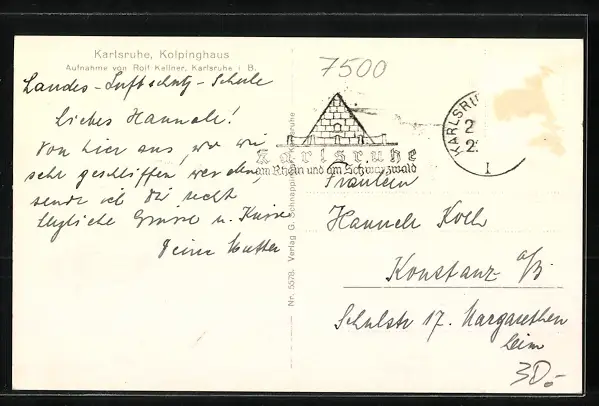 Karlsruhe, Kolpinghaus
Aufnahme von Rolf Kellner, Karlsruhe i B.
Landes-Luftschutz-Schule
Liebes Hannele!
Von hier aus, wo wir
sehr geschliffen werden,
sende ich Dir recht
herzliche Grüsse u. Küsse
Deine Mutter
Nr. 5578. Verlag G. Schnapp Karlsruhe
7500
Karlsruhe
am Rhein und am Schwarzwald
KARLSRU
2
I
Fräulein
Hannele Koch
Konstanz a/B.
Schulstr 17. Margarethen
heim
30.-